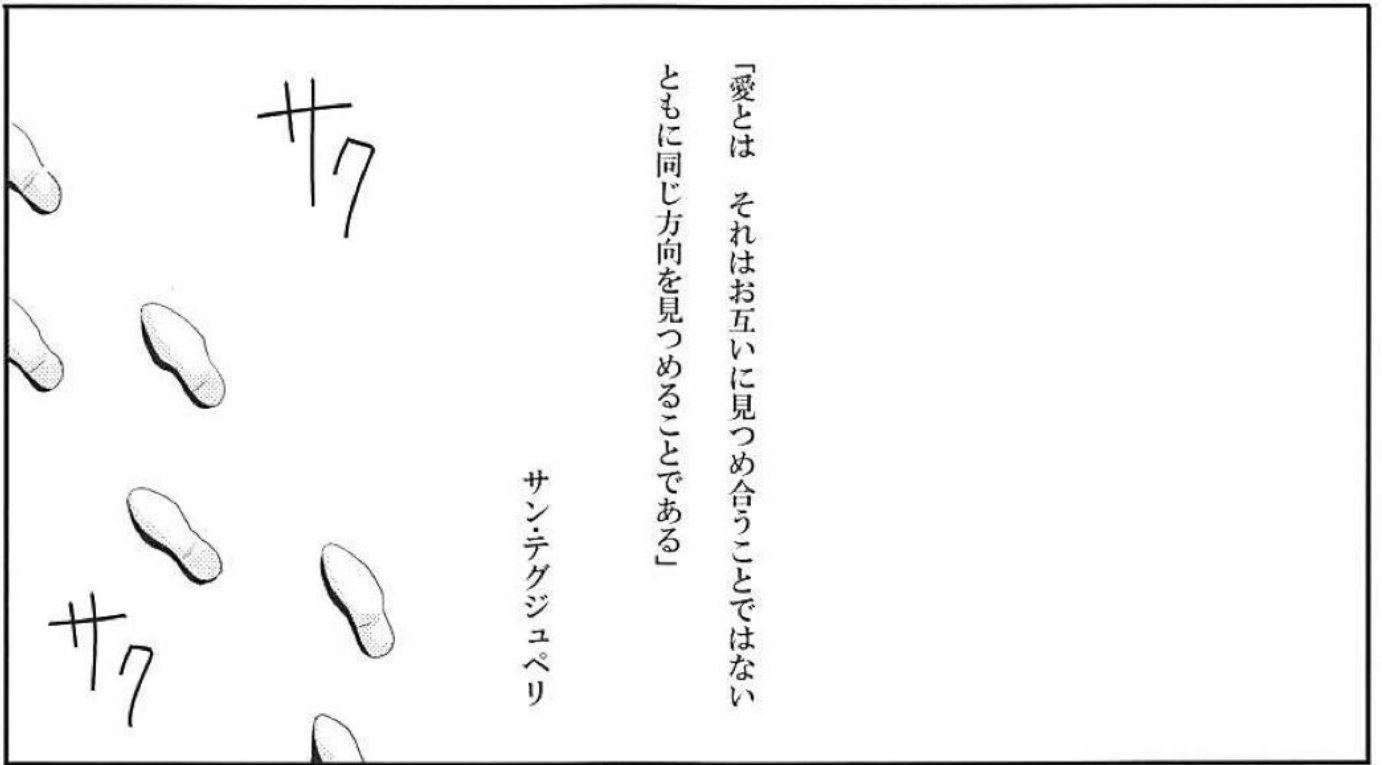 「愛とは　それはお互いに見つめ合うことではない
ともに同じ方向を見つめることである」
サン・テグジュペリ
サク
サク